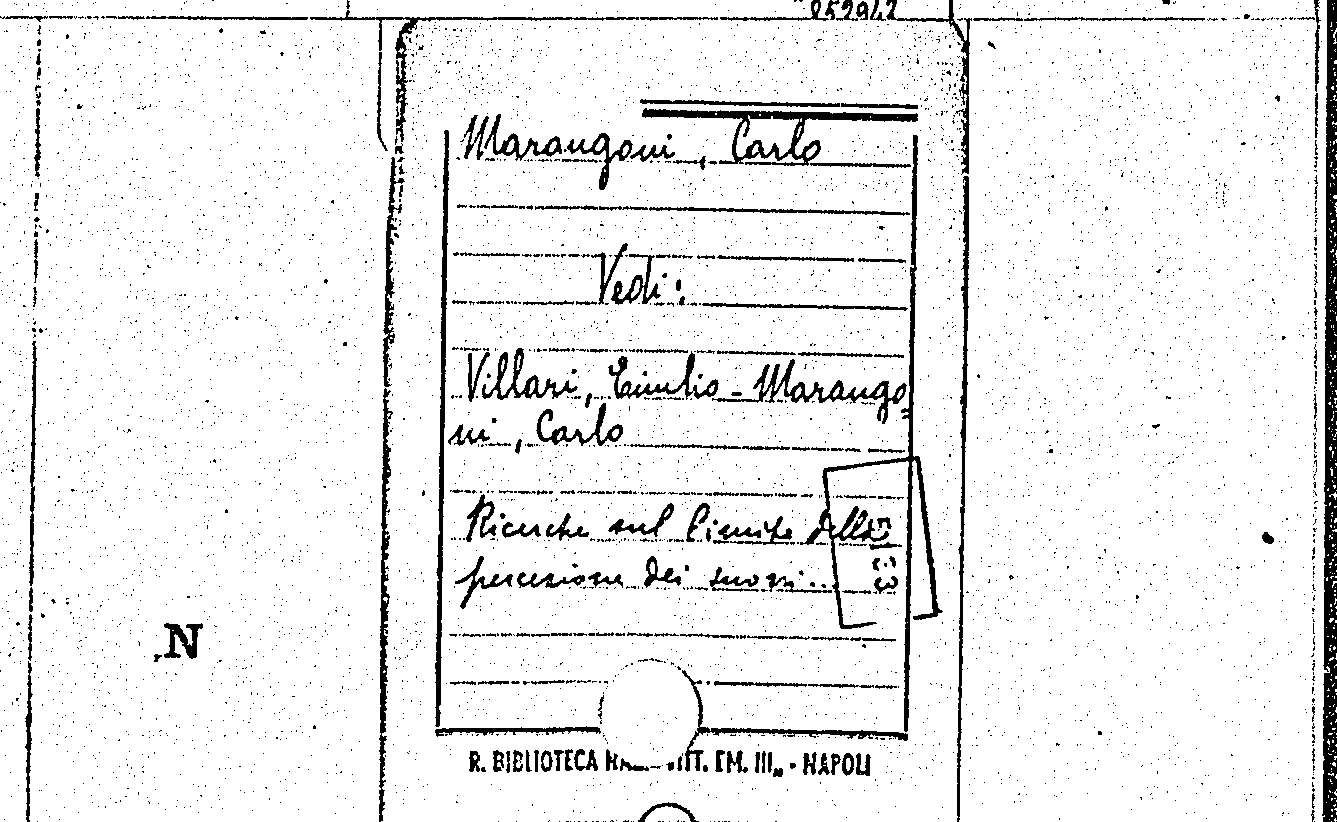 852942
Marangoni, Carlo
Vedi:
Villari, Emilio - Marango=
ni, Carlo
Ricerche sul limite della
percezione dei suoni...
N
R. BIBLIOTECA ITT. EM. III„ - NAPOLI